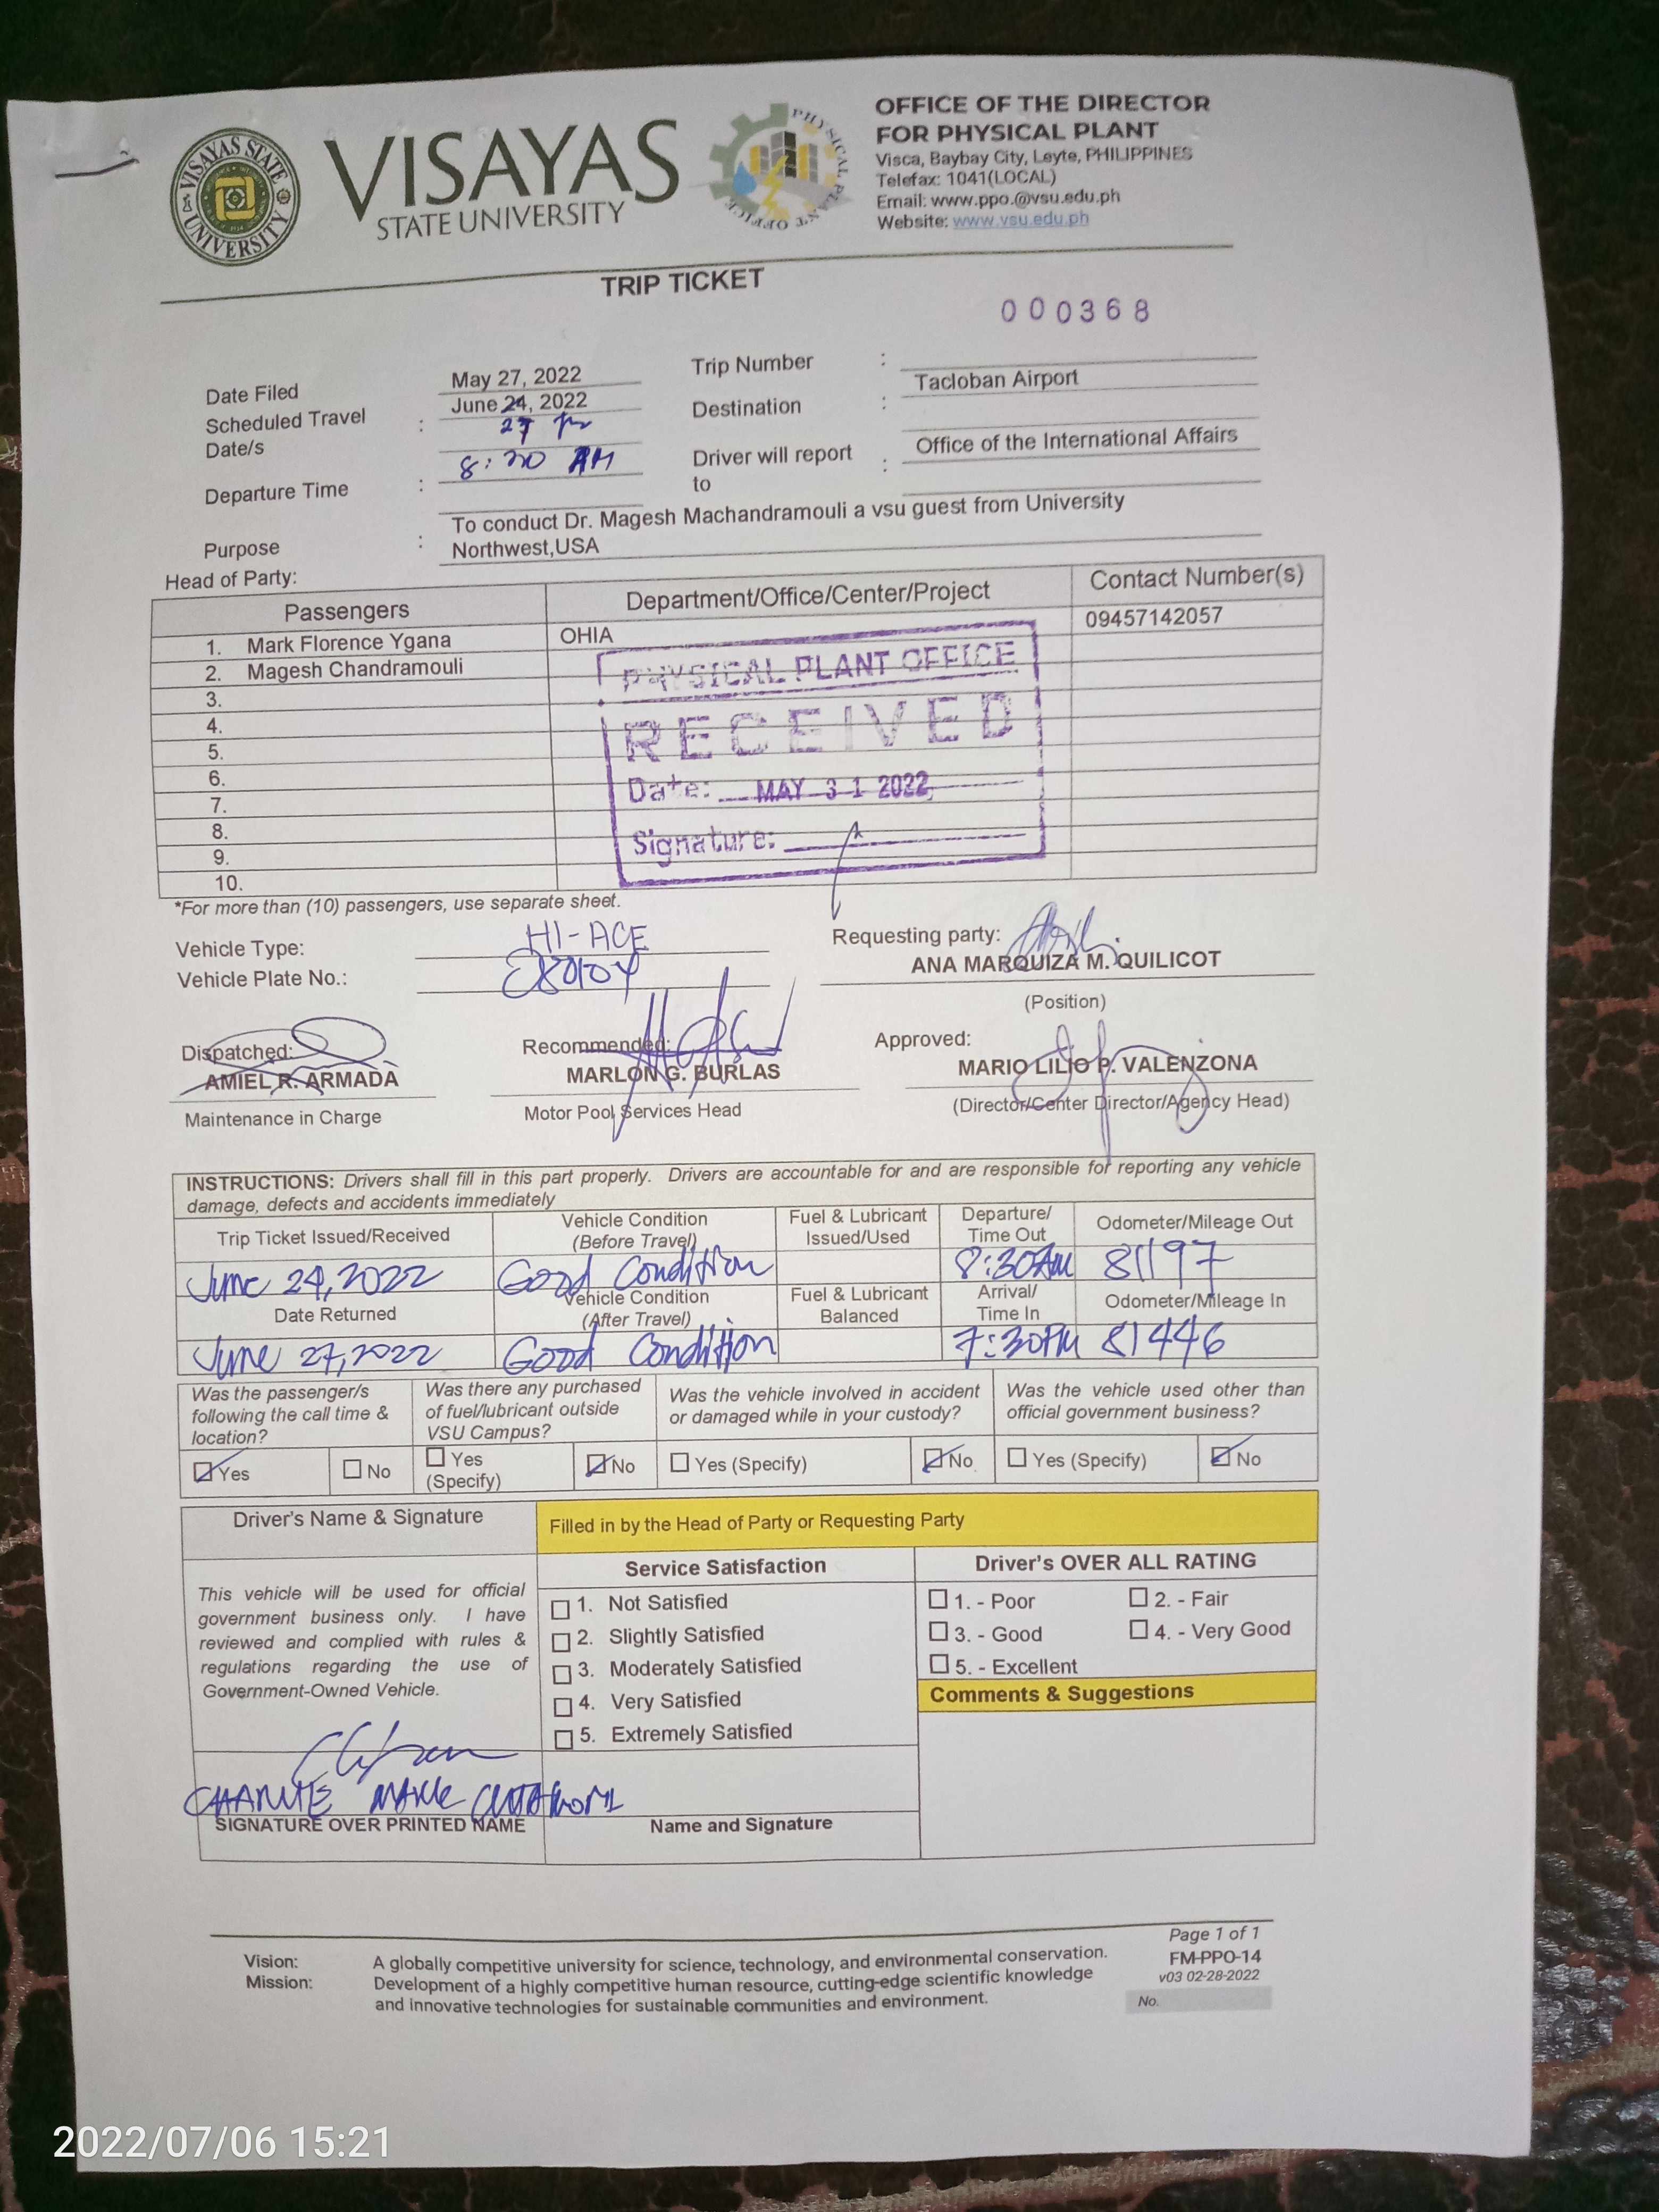 VISAYAS STATE UNIVERSITY
VISAYAS
STATE UNIVERSITY
PHYSICAL PLANT OFFICE
OFFICE OF THE DIRECTOR
FOR PHYSICAL PLANT
Visca, Baybay City, Leyte, PHILIPPINES
Telefax: 1041(LOCAL)
Email: www.ppo.@vsu.edu.ph
Website: www.vsu.edu.ph
TRIP TICKET
000368
Date Filed May 27, 2022 Trip Number :
Scheduled Travel Date/s : June 24, 2022 Destination : Tacloban Airport
27
Departure Time : 8:30 AM Driver will report to : Office of the International Affairs
Purpose : To conduct Dr. Magesh Machandramouli a vsu guest from University
Northwest,USA
Head of Party:
Passengers Department/Office/Center/Project Contact Number(s)
1. Mark Florence Ygana OHIA 09457142057
2. Magesh Chandramouli
3.
4.
5.
6.
7.
8.
9.
10.
PHYSICAL PLANT OFFICE
RECEIVED
Date: MAY 31 2022
Signature:
*For more than (10) passengers, use separate sheet.
Vehicle Type: HI-ACE Requesting party:
Vehicle Plate No.: ANA MARQUIZA M. QUILICOT
(Position)
Dispatched: Recommended: Approved:
AMIEL R. ARMADA MARLON G. BURLAS MARIO LILIO P. VALENZONA
Maintenance in Charge Motor Pool Services Head (Director/Center Director/Agency Head)
INSTRUCTIONS: Drivers shall fill in this part properly. Drivers are accountable for and are responsible for reporting any vehicle
damage, defects and accidents immediately
Trip Ticket Issued/Received Vehicle Condition (Before Travel) Fuel & Lubricant Issued/Used Departure/ Time Out Odometer/Mileage Out
June 24, 2022 Good Condition 8:30AM 81197
Date Returned Vehicle Condition (After Travel) Fuel & Lubricant Balanced Arrival/ Time In Odometer/Mileage In
June 27, 2022 Good Condition 7:30PM 81446
Was the passenger/s following the call time & location? Was there any purchased of fuel/lubricant outside VSU Campus? Was the vehicle involved in accident or damaged while in your custody? Was the vehicle used other than official government business?
Yes No Yes (Specify) No Yes (Specify) No Yes (Specify) No
Driver's Name & Signature Filled in by the Head of Party or Requesting Party
Service Satisfaction Driver's OVER ALL RATING
This vehicle will be used for official
government business only. I have
reviewed and complied with rules &
regulations regarding the use of
Government-Owned Vehicle.
1. Not Satisfied
2. Slightly Satisfied
3. Moderately Satisfied
4. Very Satisfied
5. Extremely Satisfied
1. - Poor 2. - Fair
3. - Good 4. - Very Good
5. - Excellent
Comments & Suggestions
SIGNATURE OVER PRINTED NAME Name and Signature
Page 1 of 1
FM-PPO-14
v03 02-28-2022
No.
Vision: A globally competitive university for science, technology, and environmental conservation.
Mission: Development of a highly competitive human resource, cutting-edge scientific knowledge
and innovative technologies for sustainable communities and environment.
2022/07/06 15:21